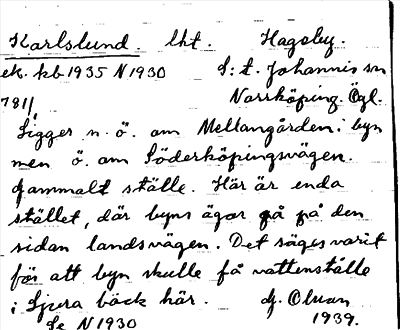 Karlslund. lht. Hageby.
ek. kb 1935 N 1930 S:t. Johannis sn
781/ Norrköping. Ögl.
Ligger n. ö. om Mellangården i byn
men ö. om Söderköpingsvägen.
Gammalt ställe. Här är enda
stället, där byns ägor gå på den
sidan landsvägen. Det säges varit
för att byn skulle få vattenställe
i Ljura bäck här. G. Olson
Se N 1930 1939.